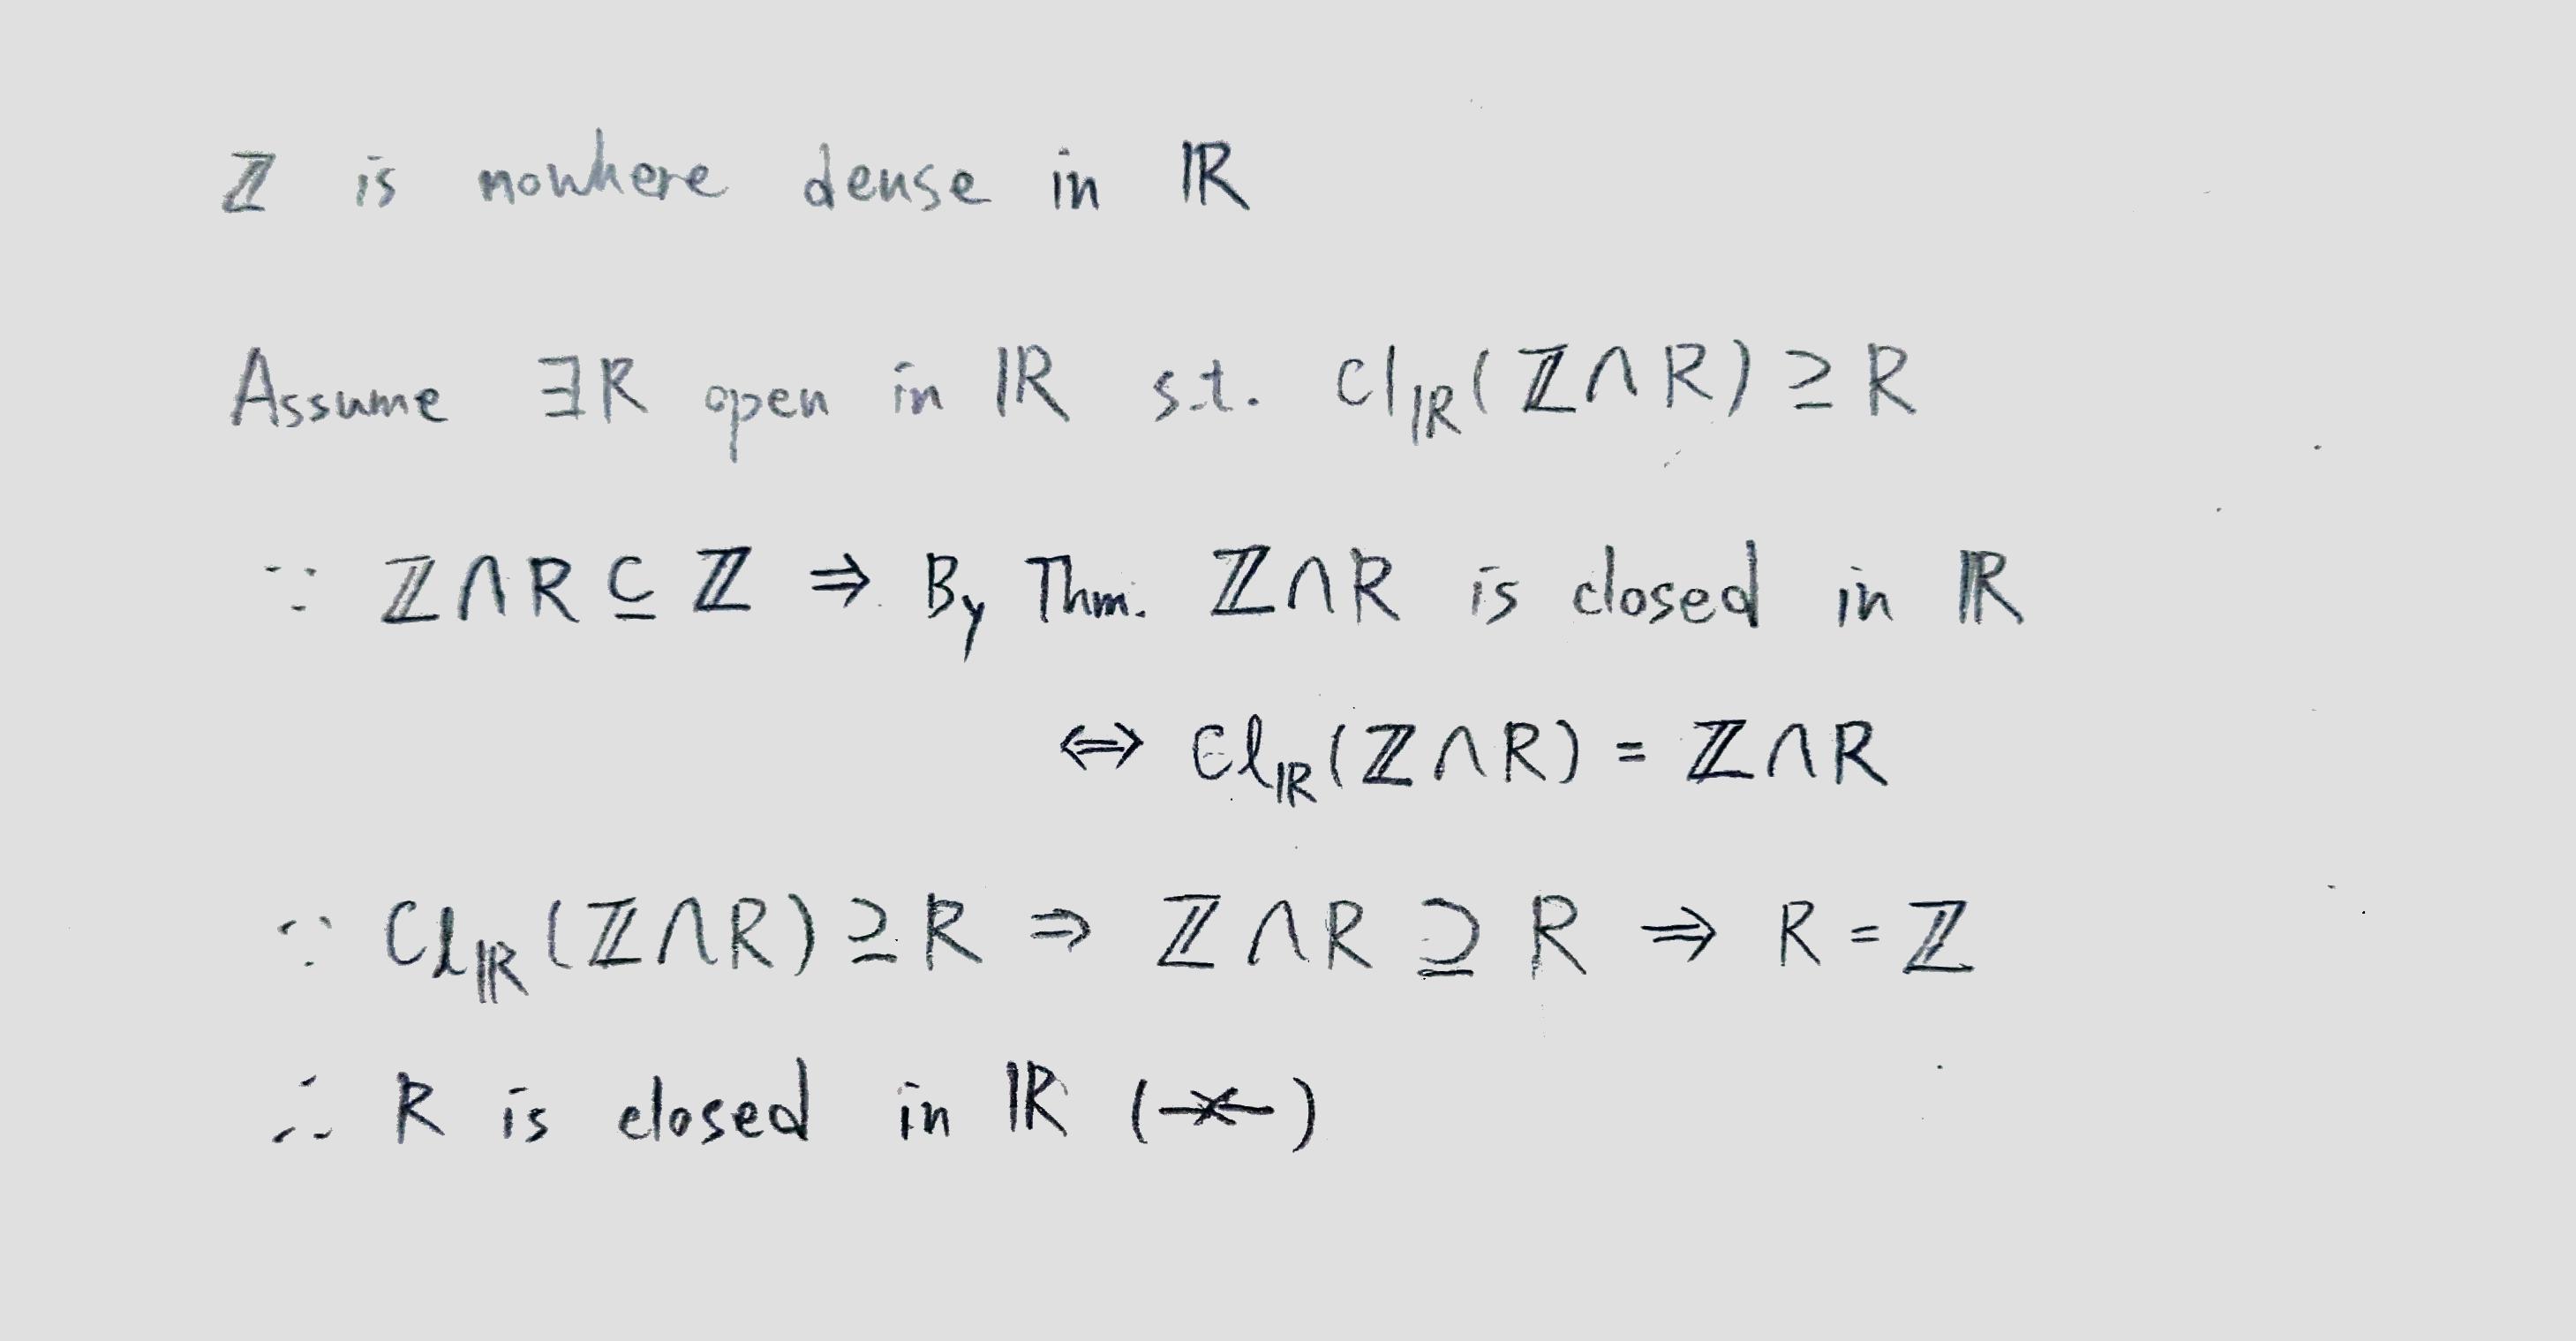 ℤ is nowhere dense in ℝ
Assume ∃R open in ℝ s.t. cl_ℝ(ℤ∩R) ⊇ R
∵ ℤ∩R ⊆ ℤ ⇒ By Thm. ℤ∩R is closed in ℝ
⇔ Cl_ℝ(ℤ∩R) = ℤ∩R
∵ Cl_ℝ(ℤ∩R) ⊇ R ⇒ ℤ∩R ⊇ R ⇒ R = ℤ
∴ R is closed in ℝ (→×←)